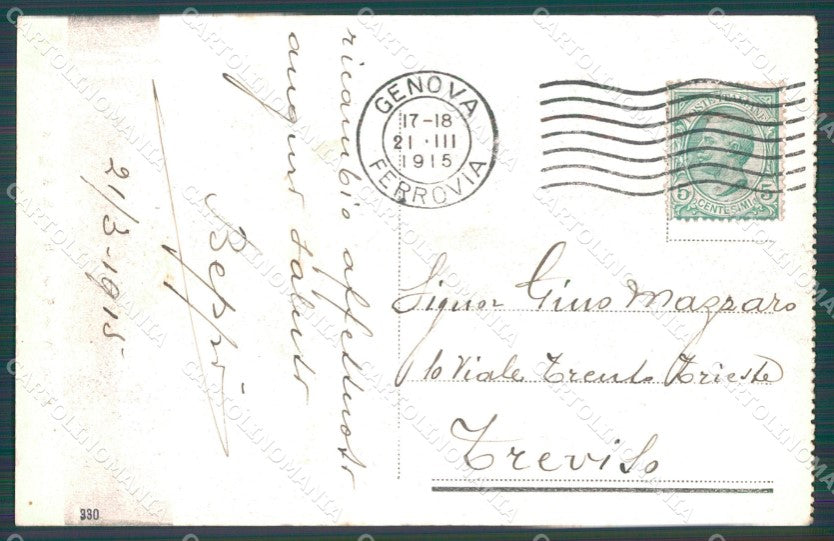 ricambio affettuosi
auguri saluti
Beppi
21/3-1915
GENOVA
17-18
21·III
1915
FERROVIA
5 CENTESIMI 5
Signor Gino Mazzaro
10 Viale Trento Trieste
Treviso
930
CARTOLINOMANIA